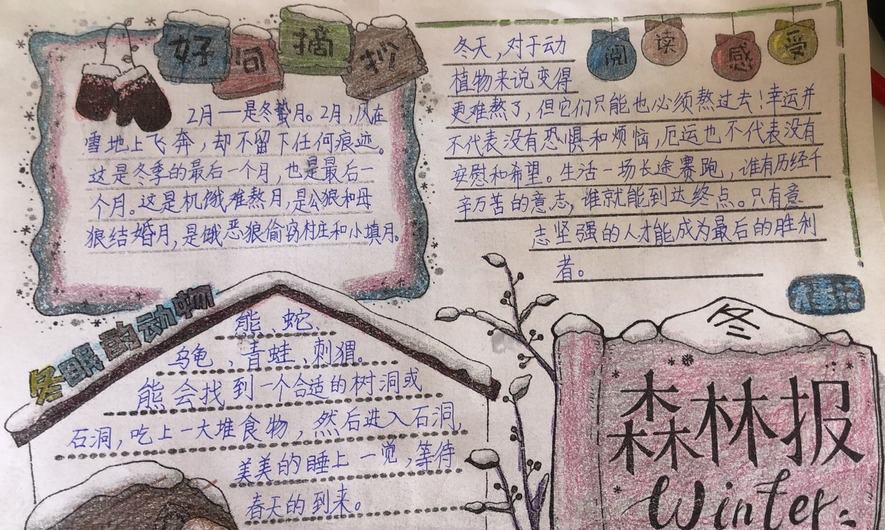 好句摘抄
2月—是冬蛰月。2月,风在
雪地上飞奔,却不留下任何痕迹。
这是冬季的最后一个月,也是最后一
个月。这是机饿难熬月,是公狼和母
狼结婚月,是饿恶狼偷窃村庄和小填月。
阅读感受
冬天,对于动
植物来说变得
更难熬了,但它们只能也必须熬过去!幸运并
不代表没有恐惧和烦恼,厄运也不代表没有
安慰和希望。生活一场长途赛跑,谁有历经千
辛万苦的意志,谁就能到达终点。只有意
志坚强的人才能成为最后的胜利
者。
冬眠的动物
熊、蛇、
乌龟、青蛙、刺猬。
熊会找到一个合适的树洞或
石洞,吃上一大堆食物,然后进入石洞,
美美的睡上一觉,等待
春天的到来。
冬
森林报
Winter